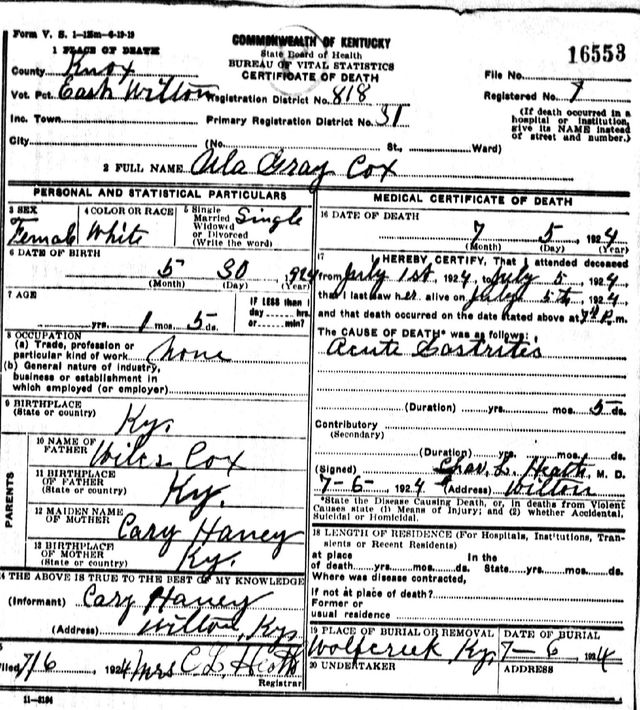 Form V. S. 1-15m-6-19-19
COMMONWEALTH OF KENTUCKY
State Board of Health
BUREAU OF VITAL STATISTICS
CERTIFICATE OF DEATH
16553
1 PLACE OF DEATH
County Knox
File No.
Vot. Pct. East Wilton Registration District No. 818
Registered No. 7
Inc. Town Primary Registration District No. 31
(If death occurred in a hospital or institution, give its NAME instead of street and number.)
City (No. St., Ward)
2 FULL NAME Ula Gray Cox
PERSONAL AND STATISTICAL PARTICULARS
3 SEX Female
4 COLOR OR RACE White
5 Single Married Widowed or Divorced (Write the word) Single
6 DATE OF BIRTH
5 30 1924
(Month) (Day) (Year)
7 AGE
yrs. 1 mos. 5 ds.
IF LESS than 1 day hrs. or min?
8 OCCUPATION
(a) Trade, profession or particular kind of work none
(b) General nature of industry, business or establishment in which employed (or employer)
9 BIRTHPLACE
(State or country) Ky.
PARENTS
10 NAME OF FATHER Cox
11 BIRTHPLACE OF FATHER (State or country) Ky.
12 MAIDEN NAME OF MOTHER Cary Haney
13 BIRTHPLACE OF MOTHER (State or country) Ky.
14 THE ABOVE IS TRUE TO THE BEST OF MY KNOWLEDGE
(Informant) Cary Haney
(Address) Wilton, Ky.
15
Filed 7/6, 1924 Mrs C L Heath
Registrar
11-3184
MEDICAL CERTIFICATE OF DEATH
16 DATE OF DEATH
7 5, 1924
(Month) (Day) (Year)
17 I HEREBY CERTIFY, That I attended deceased
from July 1st, 1924, to July 5, 1924,
that I last saw her alive on July 5th, 1924
and that death occurred on the date stated above at 7 P.m.
The CAUSE OF DEATH* was as follows:
Acute Gastrites
(Duration) yrs. mos. 5 ds.
Contributory
(Secondary)
(Duration) yrs. mos. ds.
(Signed) Chas. L. Heath, M. D.
7-6-, 1924 (Address) Wilton
*State the Disease Causing Death, or, in deaths from Violent Causes state (1) Means of Injury; and (2) whether Accidental, Suicidal or Homicidal.
18 LENGTH OF RESIDENCE (For Hospitals, Institutions, Transients or Recent Residents)
at place of death yrs. mos. ds. In the State yrs. mos. ds.
Where was disease contracted,
If not at place of death?
Former or
usual residence
19 PLACE OF BURIAL OR REMOVAL Wolfcreek Ky.
DATE OF BURIAL 7-6, 1924
20 UNDERTAKER
ADDRESS